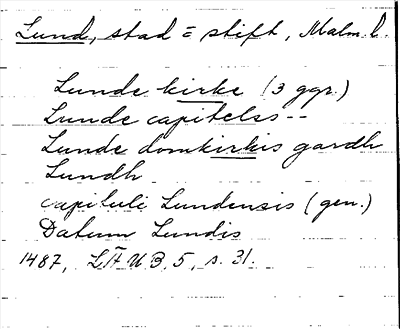 Lund, stad = stift, Malm. l.
Lunde kirke (3 ggr.)
Lunde capitelss--
Lunde domkirkis gardh
Lundh
capituli Lundensis (gen.)
Datum Lundis
1487, LÄUB 5, s. 31.